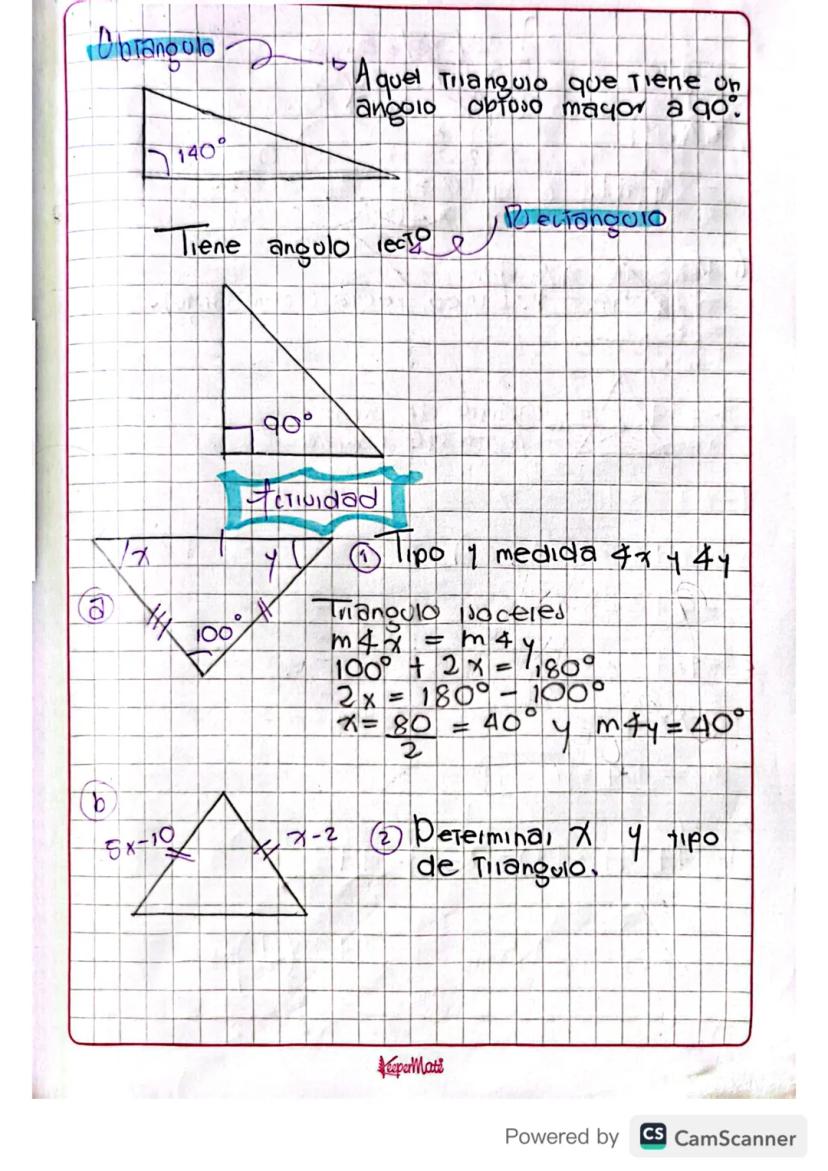 Obtangulo
Aquel Triangulo que Tiene un
angulo obtuso mayor a 90°.
140°
Rectangulo
Tiene angulo recto
90°
Actividad
x
y
① Tipo y medida ∢x y ∢y
a
100°
Triangulo isoceles
m∢x = m∢y
100° + 2x = 180°
2x = 180° - 100°
x= 80/2 = 40° y m∢y = 40°
b
5x-10
x-2
② Determinar x y tipo
de Triangulo.
KeeperMate
Powered by CS CamScanner